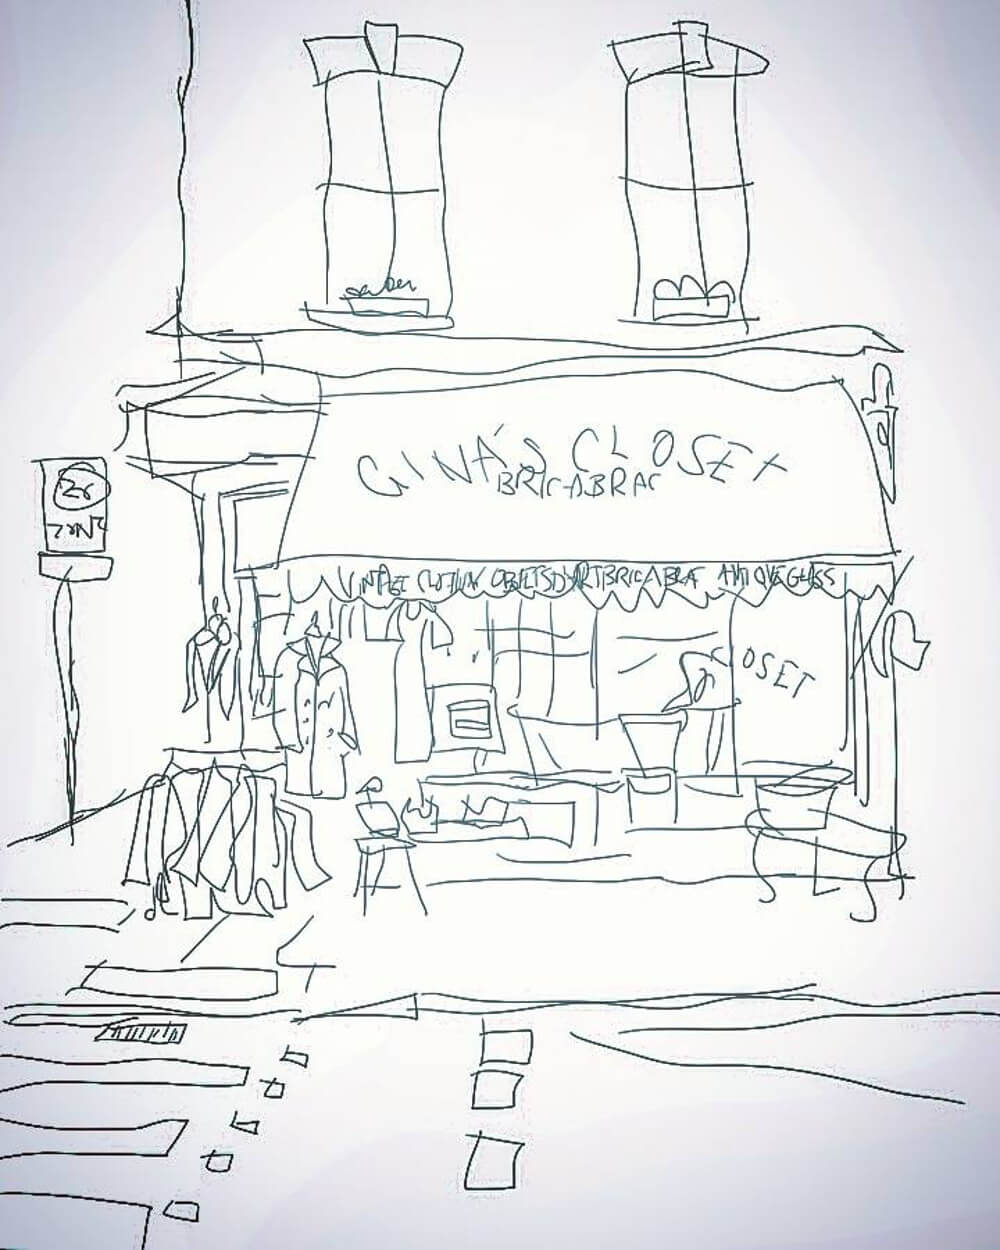 GINA'S CLOSET
BRICABRAC
VINTAGE CLOTHING OBJETS D'ART BRICABRAC ANTIQUE GLASS
20
ZONE
CLOSET